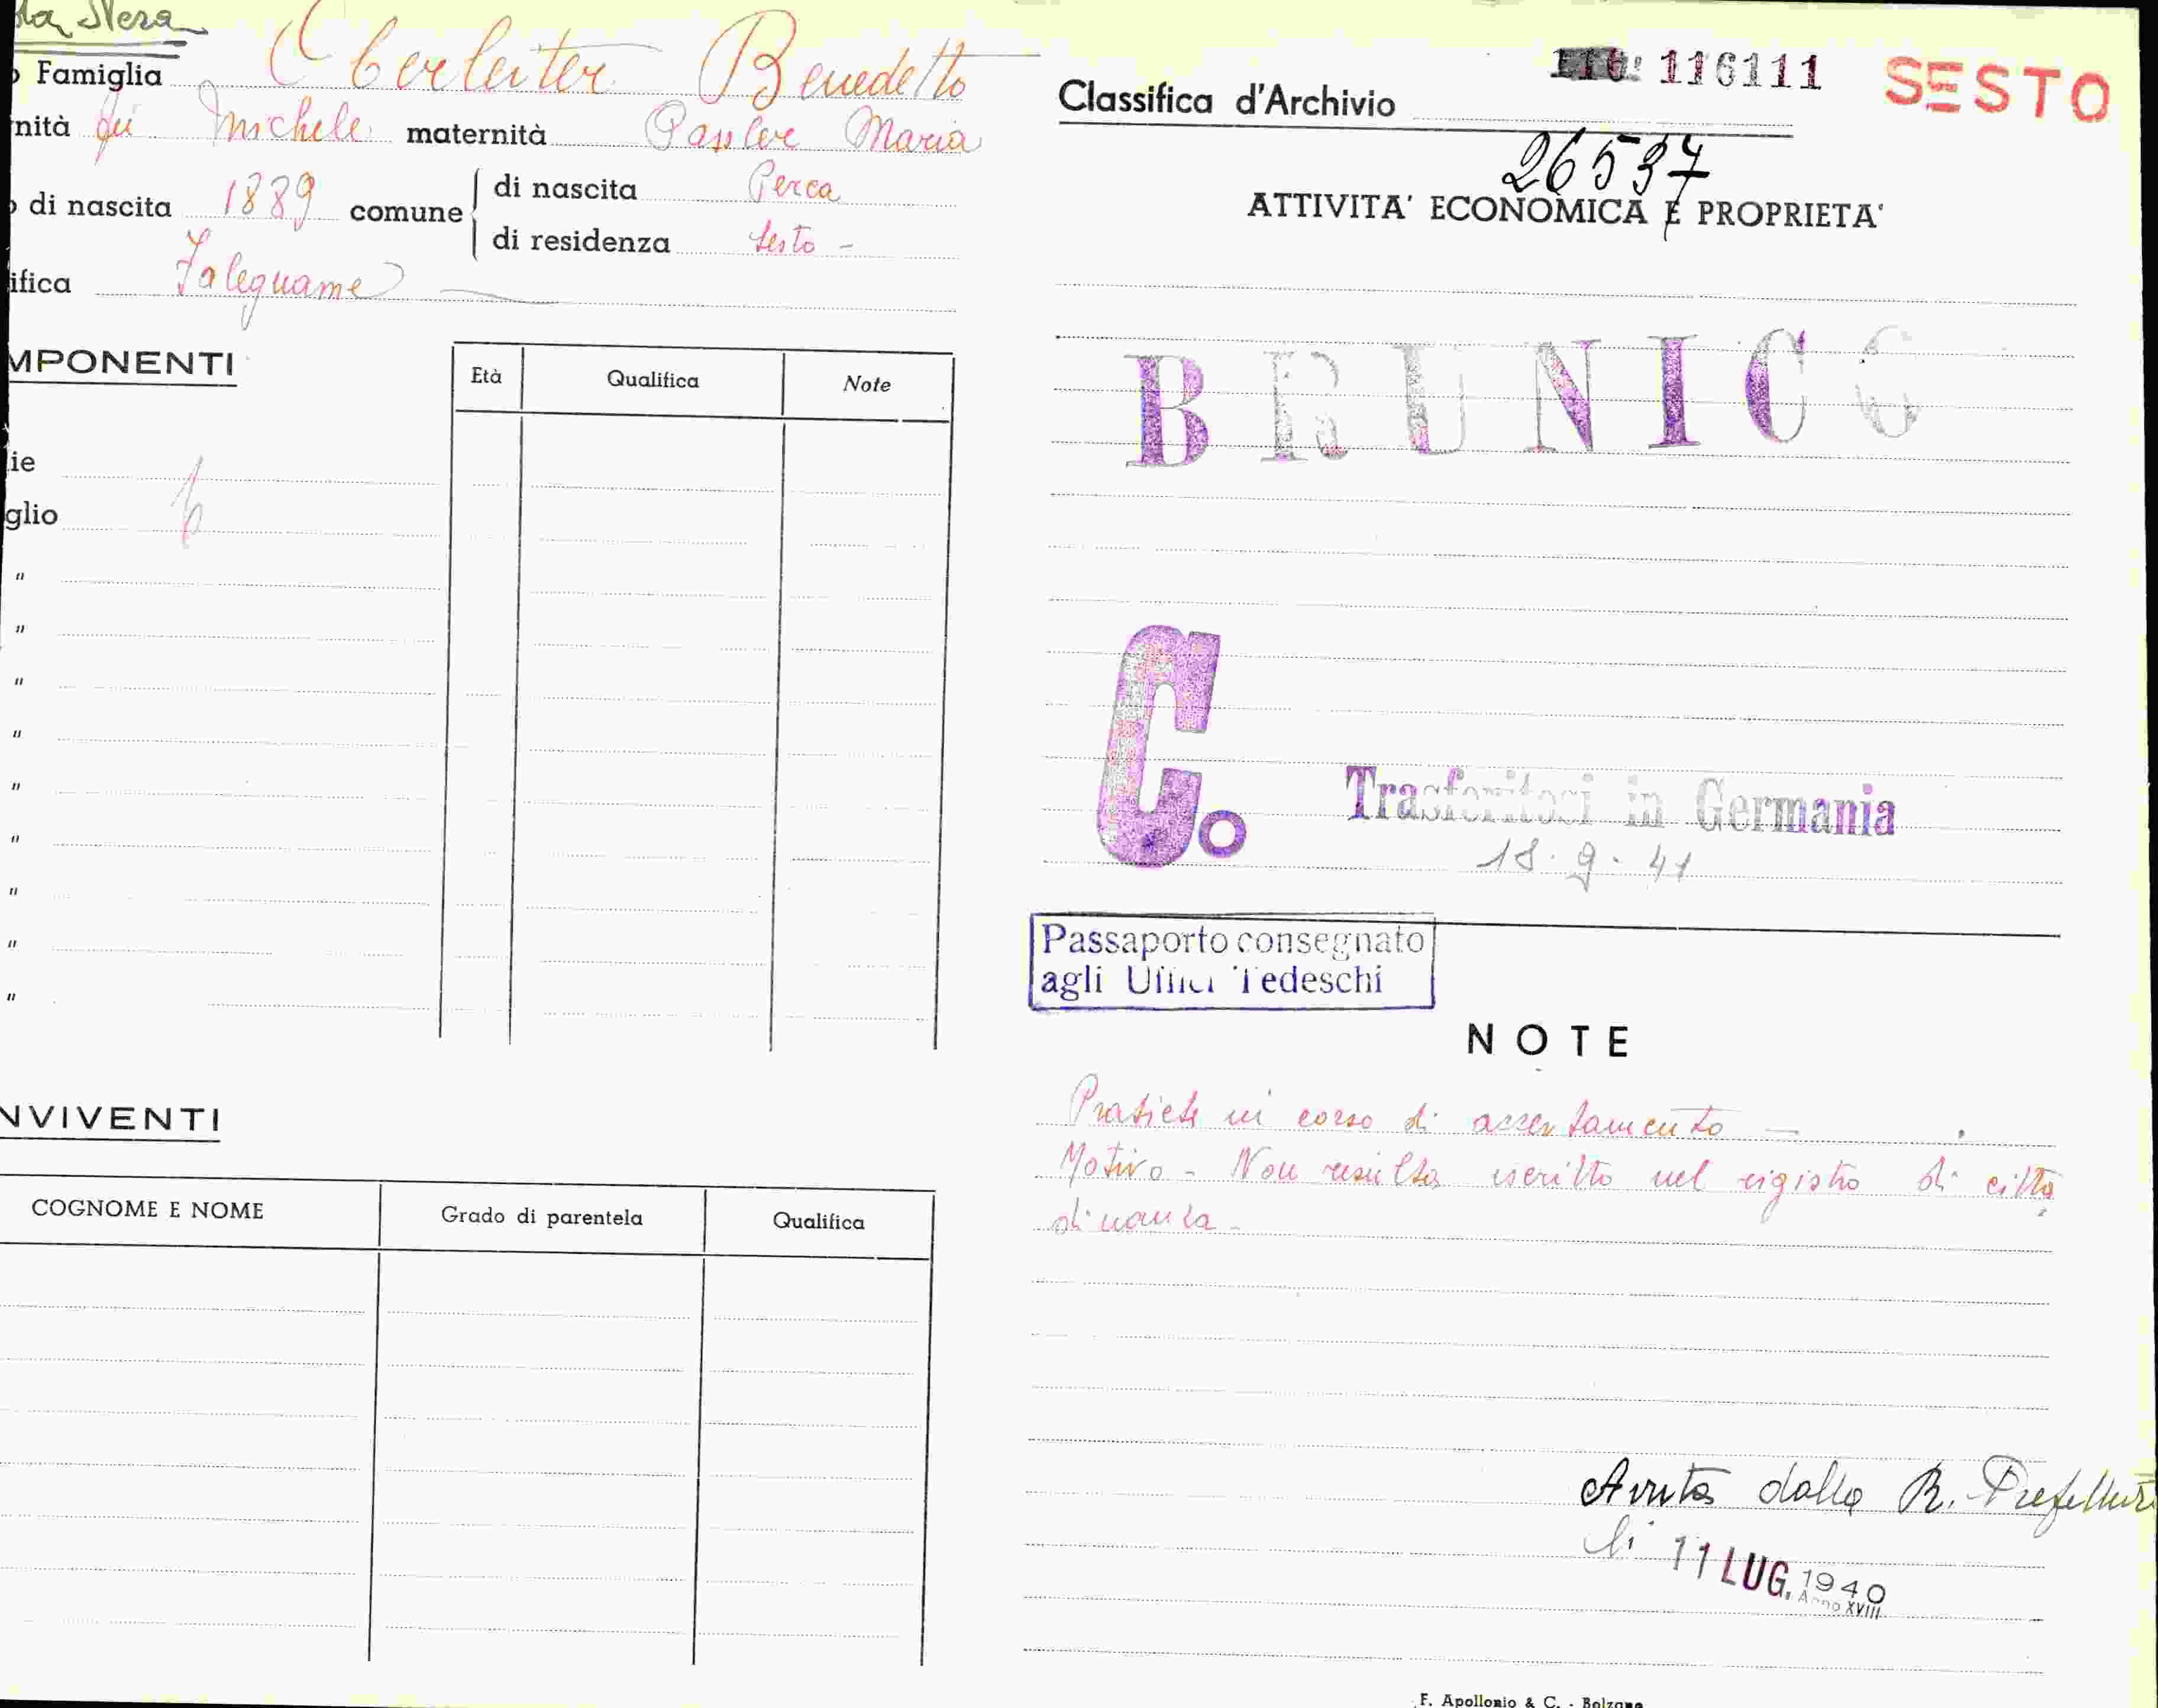 ta Nera
Famiglia Oberleiter Benedetto
nità fu Michele maternità Passler Maria
di nascita 1889 comune di nascita Perca
di residenza Sesto -
ifica Falegname
MPONENTI
Età Qualifica Note
ie
glio
"
"
"
"
"
"
"
"
"
NVIVENTI
COGNOME E NOME Grado di parentela Qualifica
116111 SESTO
Classifica d'Archivio
26537
ATTIVITA' ECONOMICA E PROPRIETA'
BRUNICO
C.
Trasferitosi in Germania
18.9.41
Passaporto consegnato
agli Uffici Tedeschi
NOTE
in corso di accertamento -
Motivo - Non risulta iscritto nel registro di citta
dinanza -
Avuta dalla R. Prefettura
li 11 LUG. 1940
Anno XVIII
F. Apollonio & C. - Bolzano